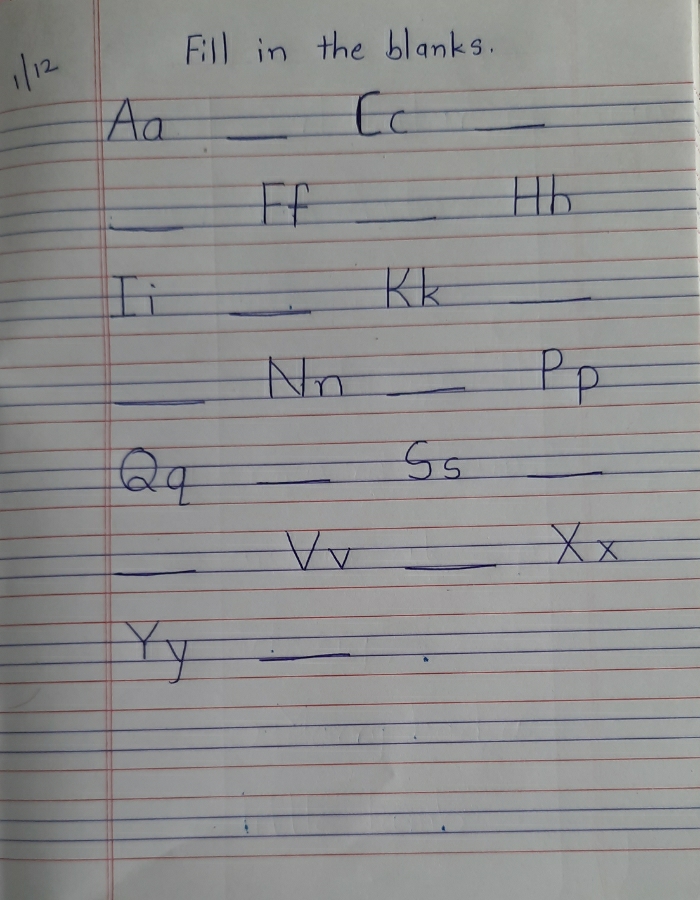 1/12
Fill in the blanks.
Aa ___ Cc ___
___ Ff ___ Hh
Ii ___ Kk ___
___ Nn ___ Pp
Qq ___ Ss ___
___ Vv ___ Xx
Yy ___